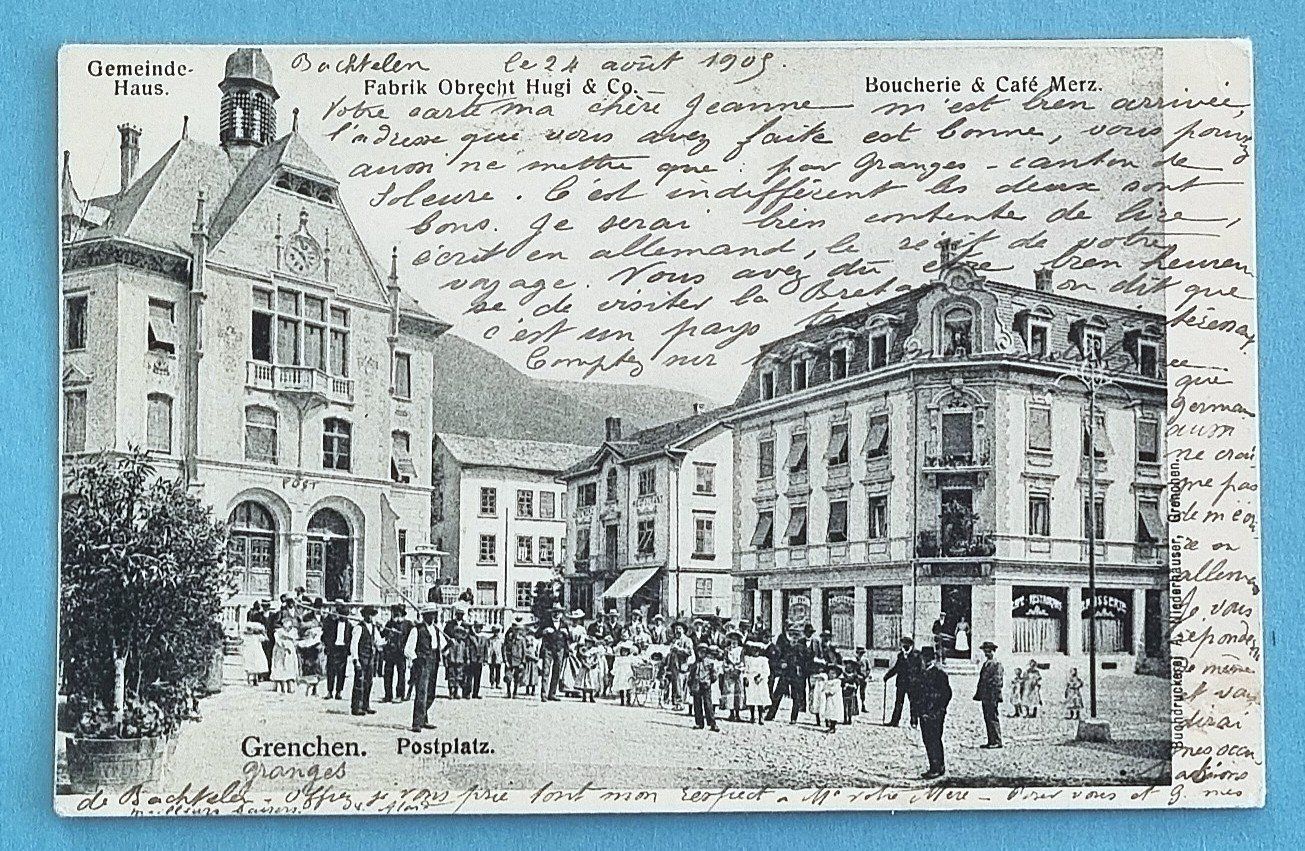 Gemeinde-
Haus.
Bachtelen le 24 août 1905.
Fabrik Obrecht Hugi & Co.
Boucherie & Café Merz.
Votre carte ma chère Jeanne m'est bien arrivée,
l'adresse que vous avez faite est bonne, vous pouvez
aussi ne mettre que : par Granges - canton de
Soleure. C'est indifférent les deux sont
bons. Je serai bien contente de lire,
écrit en allemand, le récit de votre
voyage. Vous avez dû être bien heureu
se de visiter la on dit que
c'est un pays
Comptez sur
que
german
aussi
ne crai
me pas
de m'en
allem
Je vous
réponde
même
et vous
dirai
mes occu
ations
POST
CAFÉ RESTAURANT
Buchdruckerei A. Niederhäuser, Grenchen.
Grenchen. Postplatz.
Granges
de Bachtelen - Offrez je vous prie tout mon respect à Me votre Mère - Pour vous et G. mes
meilleurs